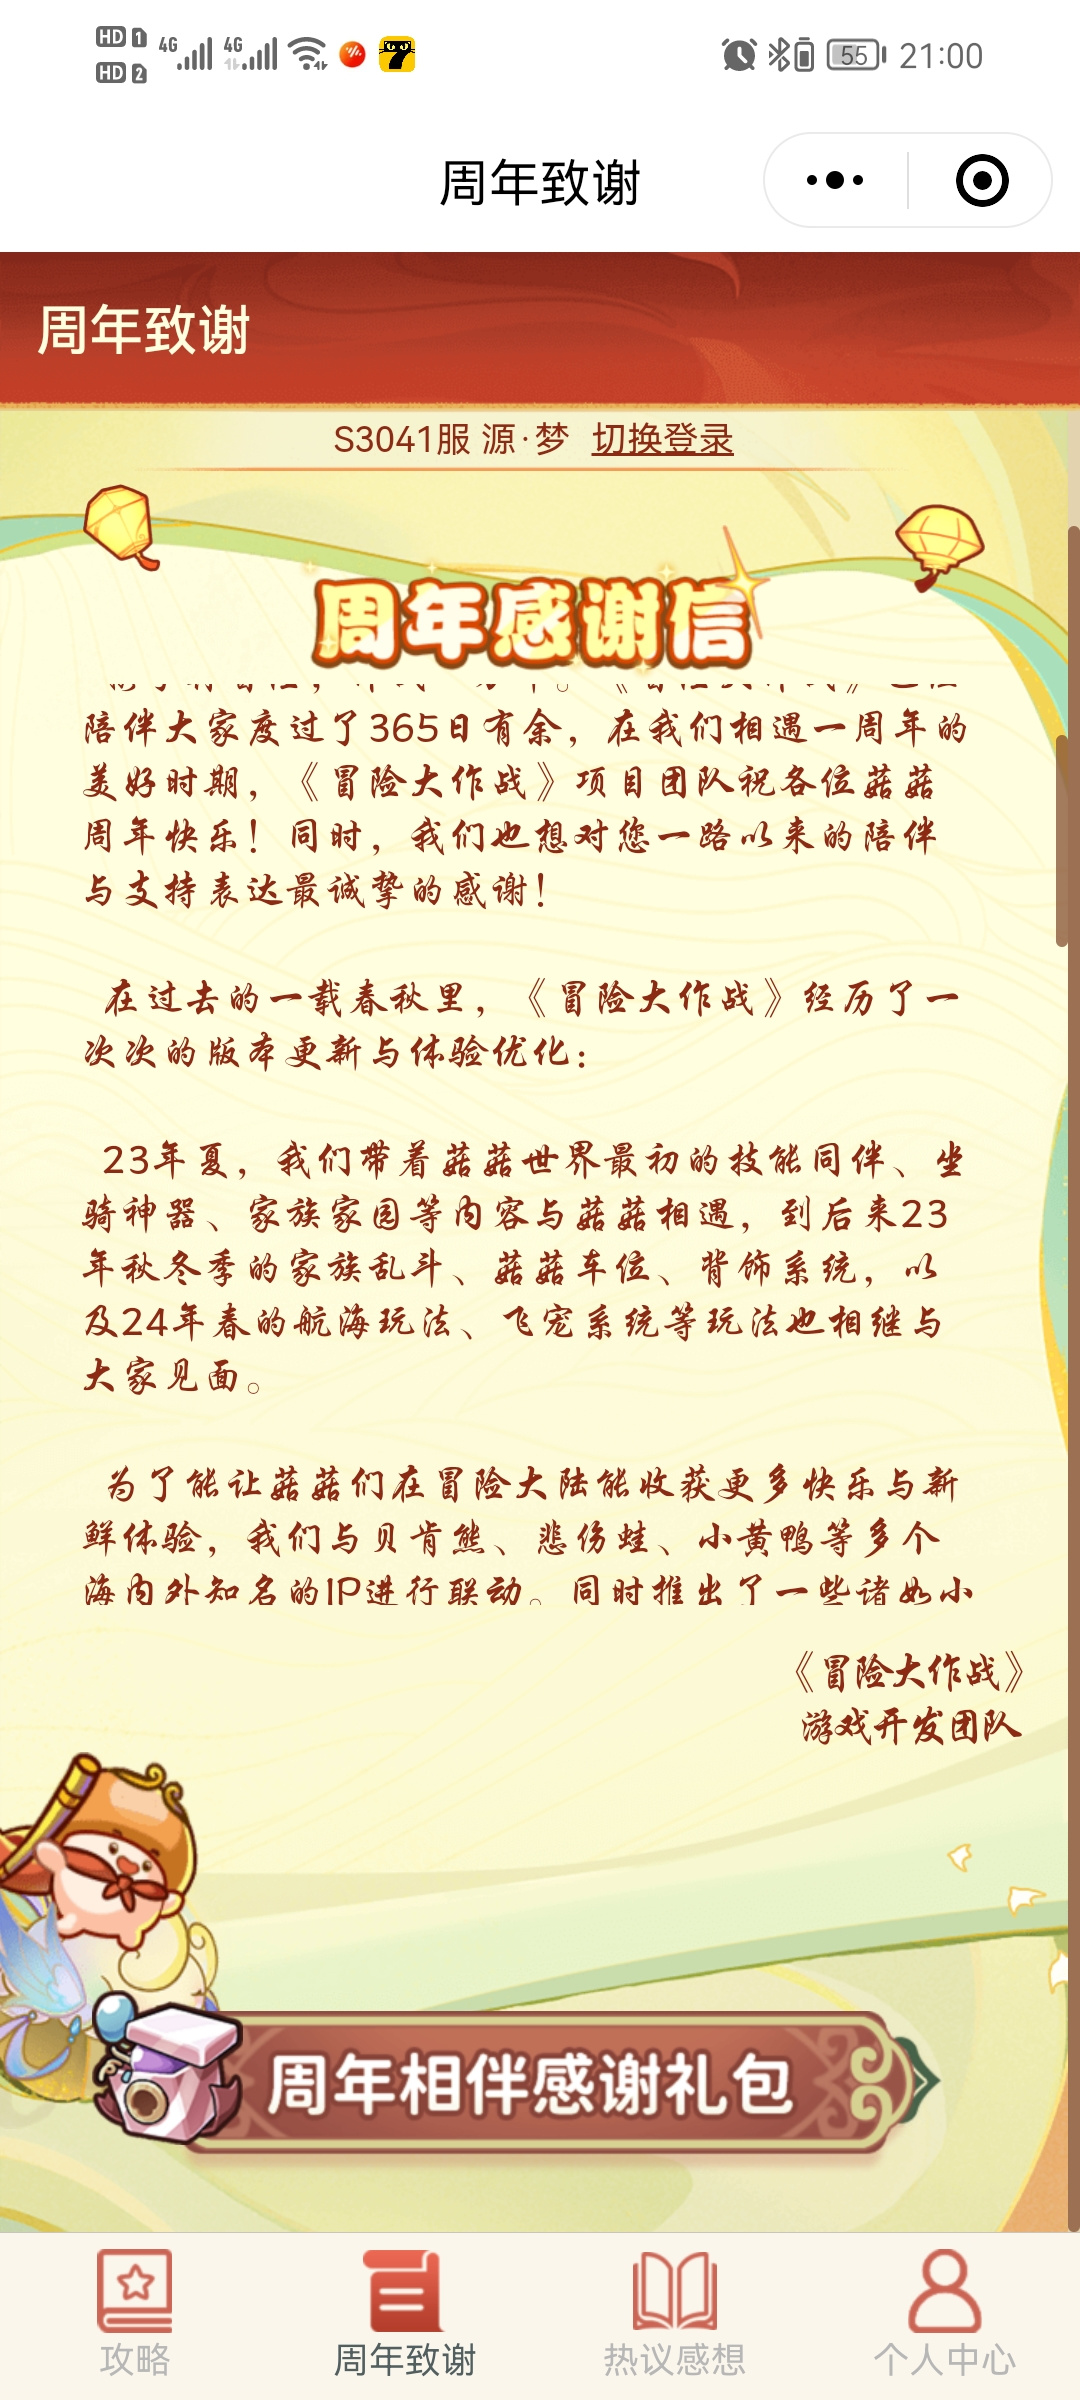 HD 1 4G 4G 55 21:00
HD 2
周年致谢
周年致谢
S3041服 源·梦 切换登录
周年感谢信
陪伴大家度过了365日有余，在我们相遇一周年的
美好时期，《冒险大作战》项目团队祝各位菇菇
周年快乐！同时，我们也想对您一路以来的陪伴
与支持表达最诚挚的感谢！
在过去的一载春秋里，《冒险大作战》经历了一
次次的版本更新与体验优化：
23年夏，我们带着菇菇世界最初的技能同伴、坐
骑神器、家族家园等内容与菇菇相遇，到后来23
年秋冬季的家族乱斗、菇菇车位、背饰系统，以
及24年春的航海玩法、飞宠系统等玩法也相继与
大家见面。
为了能让菇菇们在冒险大陆能收获更多快乐与新
鲜体验，我们与贝肯熊、悲伤蛙、小黄鸭等多个
海内外知名的IP进行联动。同时推出了一些诸如小
《冒险大作战》
游戏开发团队
周年相伴感谢礼包
攻略 周年致谢 热议感想 个人中心